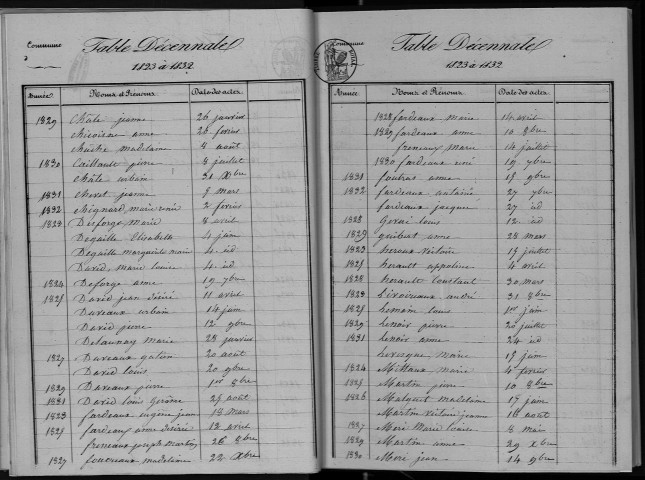 Commune
à
Table Décennale
1823 à 1832
Année Noms et Prénoms Date des actes
1829 Châle jeanne 26 janvier
Chicoisne anne 26 fevrier
Mathe madelaine 4 août
1830 Caillault pierre 8 juillet
Châle urbain 31 Xbre
1831 Chevet jeanne 9 mars
1832 Mégnard, marie renée 2 fevrier
1823 Desforge marie 8 avril
Deguille Elisabeth 4 juin
Deguille marguerite marie 4 id
David, marie louise 4 id
1824 Deforge anne 19 7bre
1825 David jean désiré 11 avril
Daveaux urbain 14 juin
David pierre 12 9bre
Delaunay marie 28 janvier
1827 Daveaux gatien 20 août
David louis 20 9bre
1829 Daveaux pierre 1er 8bre
1831 David louis Gérôme 25 août
1823 fardeaux eugène jean 18 mars
1825 fardeaux anne désirée 12 avril
freneaux joseph martin 26 8bre
1827 fouereaux madelaine 22 Xbre
Commune
Table Décennale
1823 à 1832
Année Noms et Prénoms Date des actes
1828 fardeaux marie 14 avril
1829 fardeaux anne 10 8bre
freneaux marie 14 juillet
1830 fardeaux rené 19 7bre
1831 foutras anne 15 9bre
1832 fardeaux antoine 27 7bre
fardeaux jacques 27 id
1828 Gerai louis id
1829 guibert anne 28 mars
1823 heraux victoire 15 juillet
1825 herault appoline 4 avril
1828 herault constant 30 mars
1823 Livoireaux andré 31 8bre
1825 Lemoine louis 1er juin
1829 Lenoir pierre 20 juillet
1831 Lenoir anne 24 id
Levesque marie 15 juin
1824 Millaux marie 4 fevrier
1825 Martin pierre 10 8bre
1826 Malquet madelaine 17 juin
Martin victoire jeanne 16 août
1827 Meri Marie louise 8 mai
1829 Martin anne 29 Xbre
1830 Meri jean 14 9bre